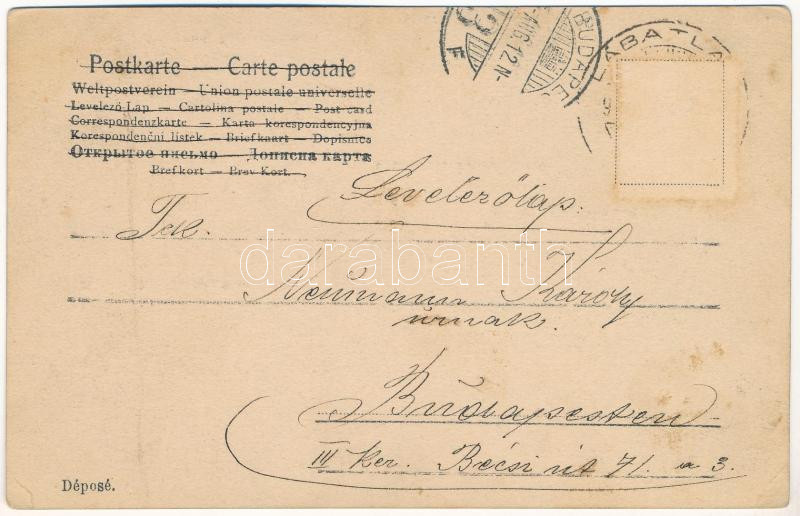 Postkarte — Carte postale
Weltpostverein — Union postale universelle
Levelező-Lap — Cartolina postale — Post card
Correspondenzkarte — Karta korespondencyjna
Korespondenční listek — Briefkaart — Dopisnica
Открытое письмо — Дописна карта
Brefkort — Brev-Kort.
BUDAPE
AUG. 12. N
LÁBATLA
Levelezőlap.
Tek.
Neumann Károly
úrnak.
Budapesten
III Ker. Bécsi út 71. a 3.
Déposé.
darabanth